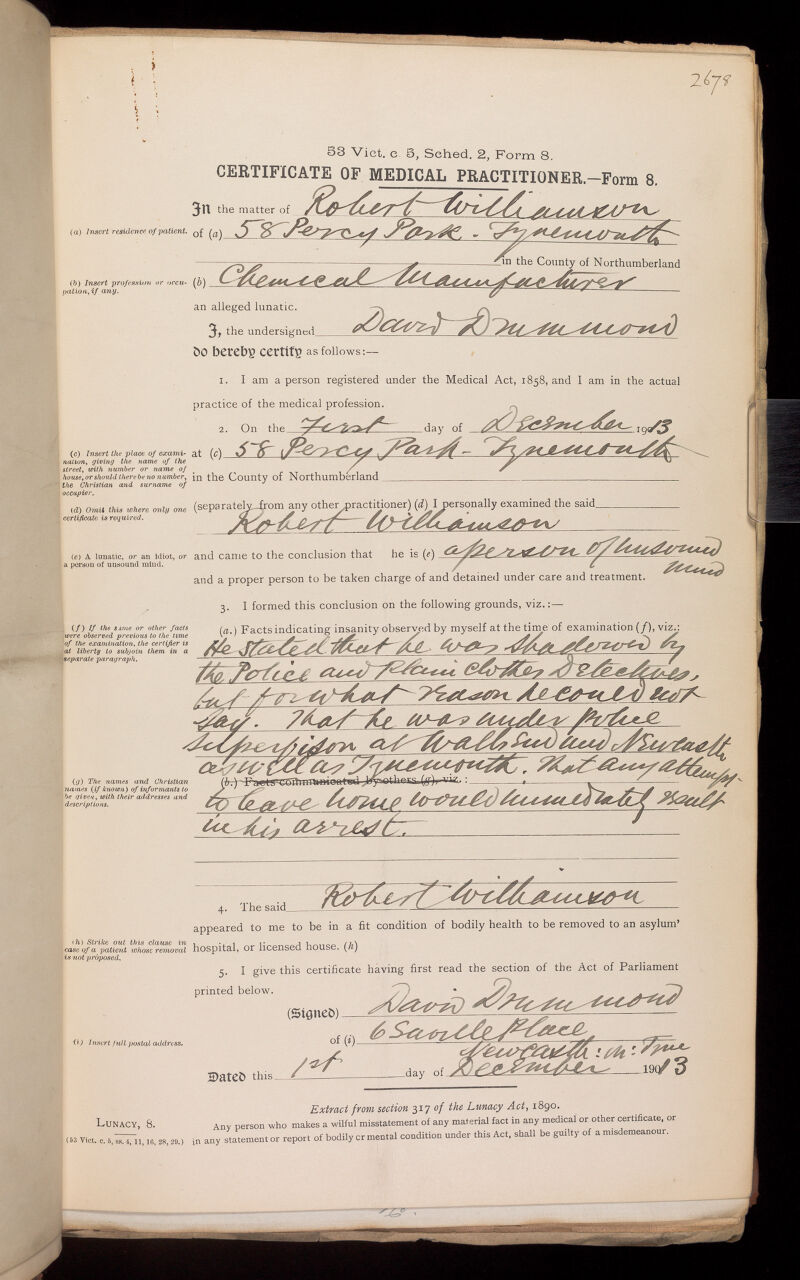 2678
53 Vict. c 5, Sched. 2, Form 8.
CERTIFICATE OF MEDICAL PRACTITIONER.—Form 8.
In the matter of Robert Williamson
(a) Insert residence of patient. of (a) 58 Percy Park - Tynemouth
in the County of Northumberland
(b) Insert profession or occupation, if any. (b) Chemical Manufacturer
an alleged lunatic.
I, the undersigned David Drummond
do hereby certify as follows:—
1. I am a person registered under the Medical Act, 1858, and I am in the actual
practice of the medical profession.
2. On the First day of December 1913
(c) Insert the place of examination, giving the name of the street, with number or name of house, or should there be no number, the Christian and surname of occupier. at (c) 58 Percy Park - Tynemouth
in the County of Northumberland
(d) Omit this where only one certificate is required. (separately from any other practitioner) (d) I personally examined the said
Robert Williamson
(e) A lunatic, or an idiot, or a person of unsound mind. and came to the conclusion that he is (e) a person of unsound
mind
and a proper person to be taken charge of and detained under care and treatment.
3. I formed this conclusion on the following grounds, viz.:—
(f) If the same or other facts were observed previous to the time of the examination, the certifier is at liberty to subjoin them in a separate paragraph. (a.) Facts indicating insanity observed by myself at the time of examination (f), viz.:
He stated that he was shadowed by
the Police and Plain Clothes Detectives,
but for what reason he could not
say. That he was under police
supervision at Wallsend and Newcastle
as well as Tynemouth. That any attempt
(g) The names and Christian names (if known) of informants to be given, with their addresses and descriptions. (b.) Facts communicated by others (g), viz.:
to leave home would immediately result
in his arrest.
4. The said Robert Williamson
appeared to me to be in a fit condition of bodily health to be removed to an asylum'
(h) Strike out this clause in case of a patient whose removal is not proposed. hospital, or licensed house. (h)
5. I give this certificate having first read the section of the Act of Parliament
printed below.
(Signed) David Drummond
(i) Insert full postal address. of (i) 6 Saville Place
Newcastle: on: Tyne
Dated this 1st day of December 1913
Extract from section 317 of the Lunacy Act, 1890.
LUNACY, 8. Any person who makes a wilful misstatement of any material fact in any medical or other certificate, or
(53 Vict. c. 5, ss. 4, 11, 16, 28, 29.) in any statement or report of bodily or mental condition under this Act, shall be guilty of a misdemeanour.